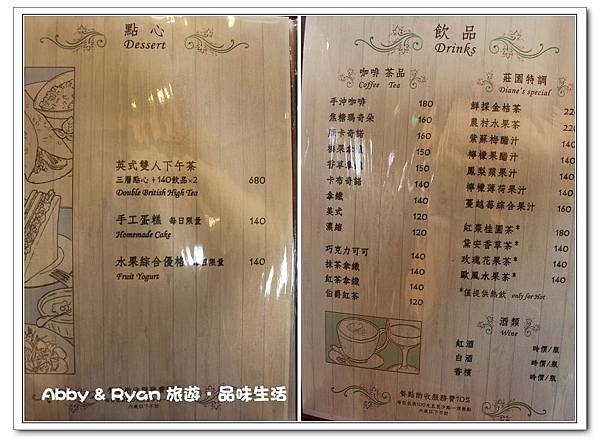 點心
Dessert
英式雙人下午茶
三層點心+140飲品×2 680
Double British High Tea
手工蛋糕 每日限量 140
Homemade Cake
水果綜合優格 每日限量 140
Fruit Yogurt
六歲以下不計
Abby & Ryan 旅遊，品味生活
飲品
Drinks
咖啡 茶品
Coffee Tea
手沖咖啡 180
焦糖瑪奇朵 160
摩卡奇諾 160
榛果拿鐵
香草拿鐵
卡布奇諾 140
拿鐵 140
美式 120
濃縮 120
巧克力可可 140
抹茶拿鐵 140
紅茶拿鐵 140
伯爵紅茶 120
莊園特調
Diane's special
鮮採金桔茶 220
農村水果茶 220
紫蘇梅醋汁 160
檸檬果醋汁 160
鳳梨蘋果汁 160
檸檬薄荷果汁 160
蔓越莓綜合果汁 160
紅棗桂圓茶* 180
黛安香草茶* 200
玫瑰花果茶* 200
歐風水果茶* 200
*僅提供熱飲 only for Hot
酒類
Wine
紅酒 時價/瓶
白酒 時價/瓶
香檳 時價/瓶
餐點酌收服務費10%
六歲以下不計